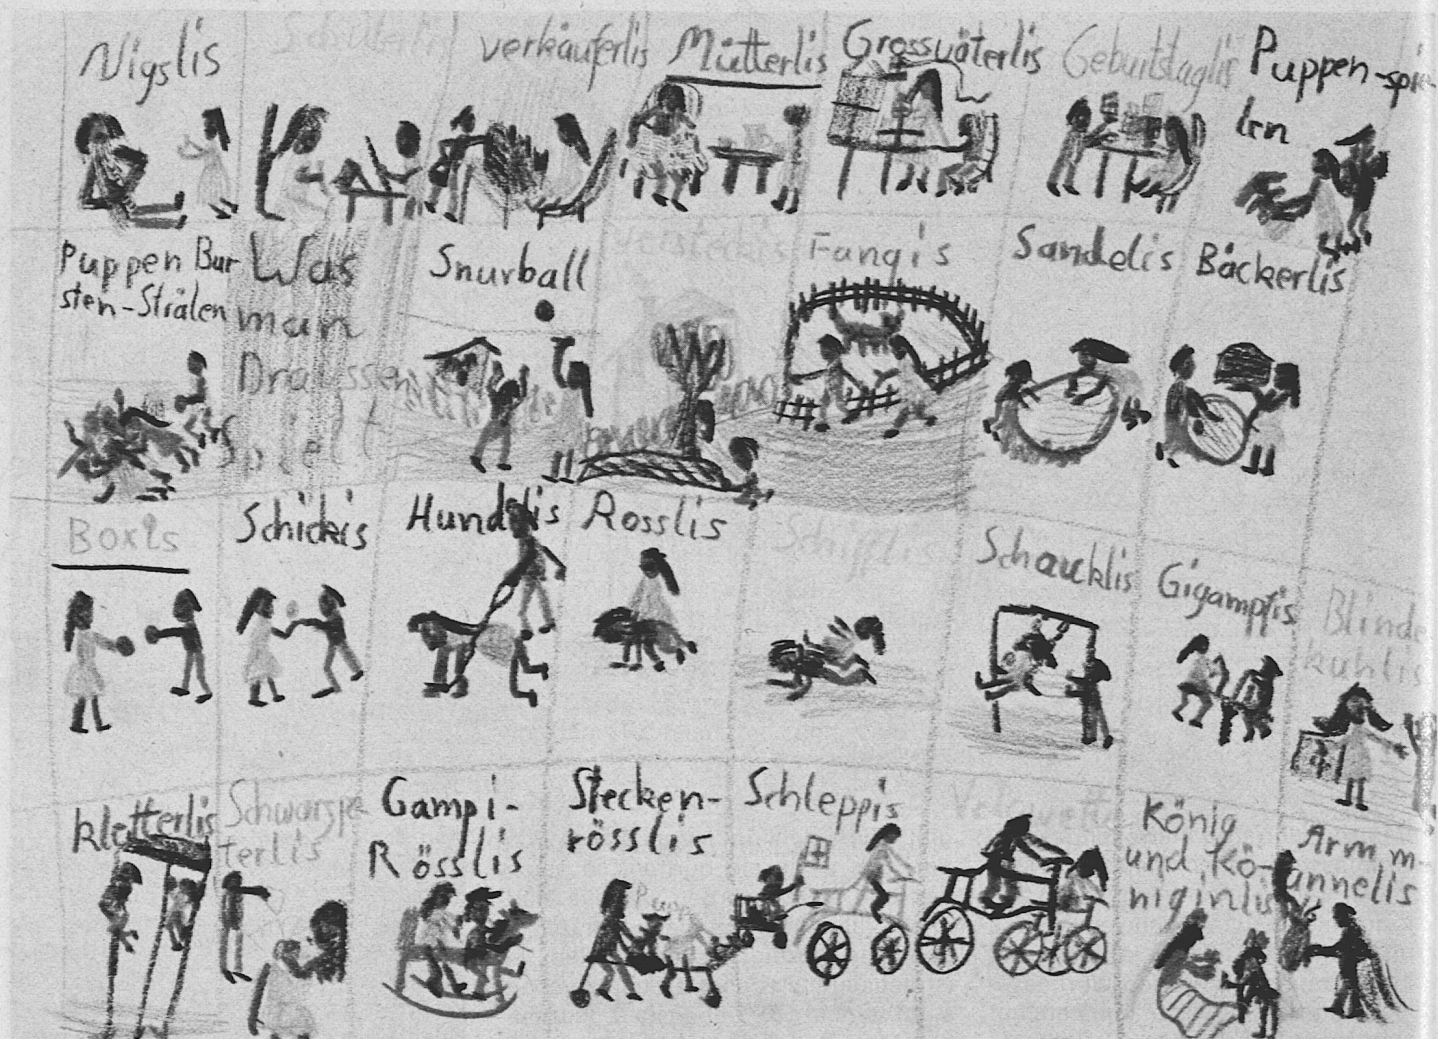 Nigslis
Verkäuferlis
Mütterlis
Grossväterlis
Geburtstaglis
Puppen-spie-
len
Puppen Bur
sten-Strälen
Was
man
Draussen
Spielt
Snurball
Versteckis
Fangis
Sandelis
Bäckerlis
Boxis
Schickis
Hundelis
Rösslis
Schifflis
Schaucklis
Gigampfis
Blinde
kuhlis
kletterlis
Schwarzpe-
terlis
Gampi-
Rösslis
Stecken-
rösslis
Schleppis
König
und Kö-
niginlis
Arm m-
annelis